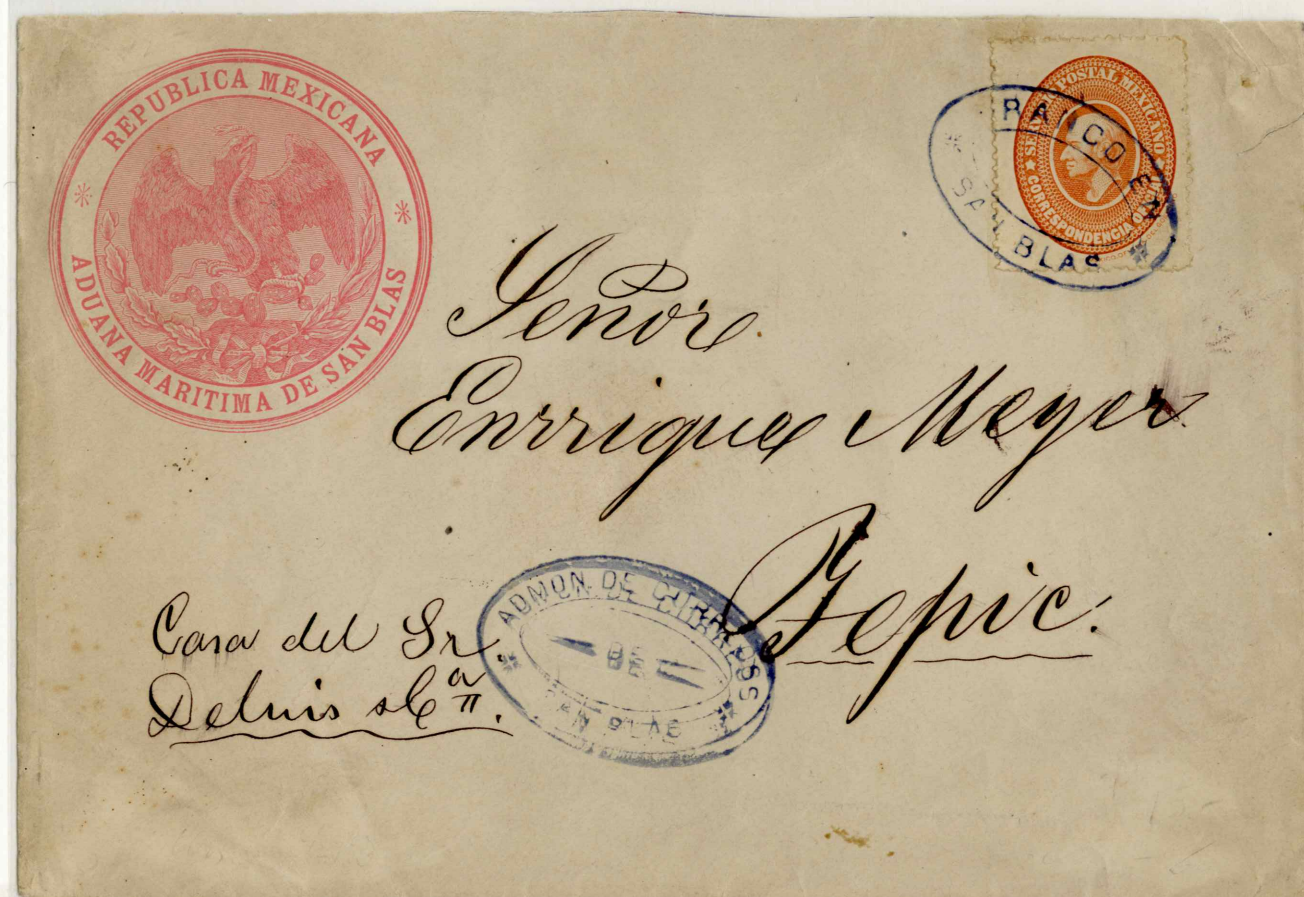 REPUBLICA MEXICANA
ADUANA MARITIMA DE SAN BLAS
SERVICIO POSTAL MEXICANO
CORRESPONDENCIA OFICIAL
FRANCO EN
SAN BLAS
Señor
Enrrique Meyer
Tepic.
ADMON DE CORREOS
SAN BLAS
Casa del Sr.
Delius &